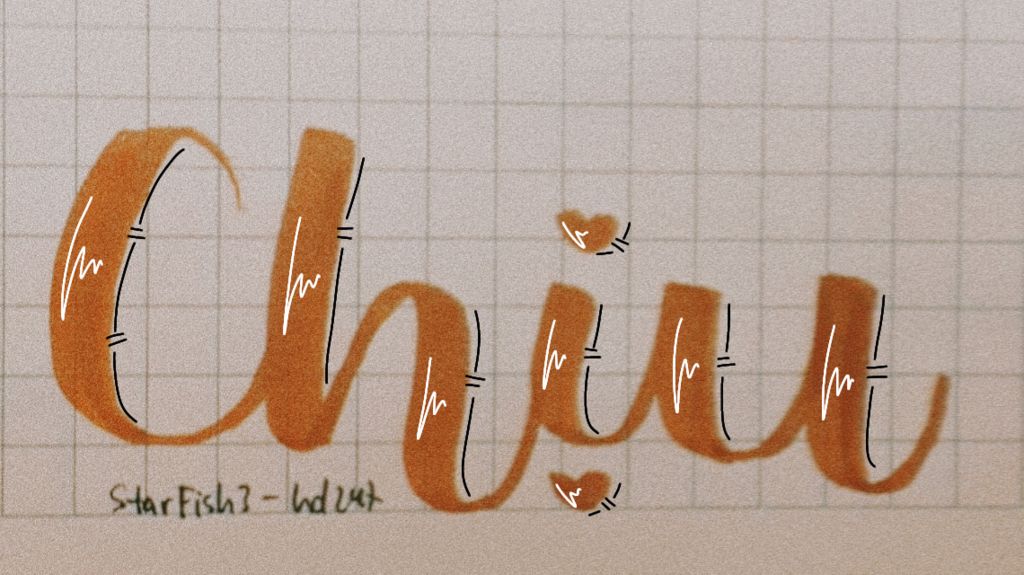 Chịu
StarFish3 - hd247